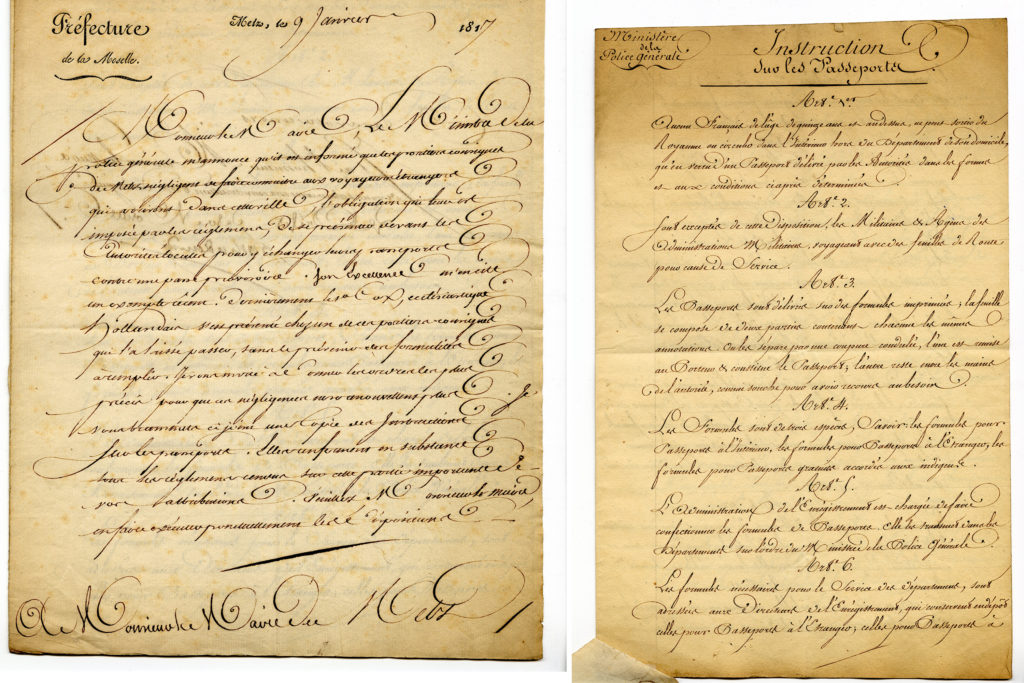 Préfecture
de la Moselle.
Metz, le 9 Janvier 1817
Monsieur le Maire, Le Ministre de la
Police générale m'annonce qu'il est informé que les portiers consignes
de Metz négligent de faire connaitre aux voyageurs étrangers
qui arrivent dans cette ville l'obligation que leur est
imposée par les règlemens de se présenter devant les
Autorités locales pour y échanger leurs passeports
contre une passe provisoire. Son Excellence m'en cite
un exemple récent. Dernièrement le Sr. Cox, ecclésiastique
Hollandais s'est présenté chez un de ces portiers consignes
qui l'a laissé passer, sans le prévenir des formalités
à remplir. Je vous invite à donner les ordres les plus
précis pour que ces négligences ne se renouvellent plus. Je
vous transmets ci joint une Copie des Instructions
sur les passeports. Elles renferment en substance
tous les règlemens rendus sur cette partie importante de
vos attributions. Veuillez Monsieur le maire,
en faire exécuter ponctuellement les dispositions
A Monsieur le Maire de Metz
Ministère
de la
Police Générale
Instruction
sur les Passeports
Art. 1er
Aucun Français de l'âge de quinze ans et au dessus, ne peut sortir du
Royaume ou circuler dans l'Intérieur hors du Département de son domicile,
qu'en vertu d'un Passeport délivré par les Autorités dans les formes
et aux conditions ci après déterminées
Art. 2.
Sont exceptés de cette Disposition, les Militaires & Agens des
Administrations Militaires, voyageant avec des feuilles de Route
pour cause de Service.
Art. 3.
Les Passeports sont délivrés sur des formules imprimées; la feuille
se compose de deux parties contenant chacune les mêmes
annotations. On les sépare par une coupure ondulée, l'une est remise
au Porteur & constitue le Passeport; l'autre reste entre les mains
de l'autorité, comme souche pour y avoir recours au besoin
Art. 4.
Les Formules sont de trois espèces, Savoir: les formules pour
Passeports à l'Intérieur, les formules pour Passeports à l'Etranger, les
formules pour Passeports gratuits accordés aux indigens.
Art. 5.
L'Administration de l'Enregistrement est chargée de faire
confectionner les formules de Passeports. Elle les transmet dans les
Départements sur l'ordre du Ministre de la Police Générale.
Art. 6.
Les formules nécessaires pour le Service des départemens, sont
adressées aux Directeurs de l'Enregistrement, qui conservent en dépôt
celles pour Passeports à l'Etranger; celles pour Passeports à